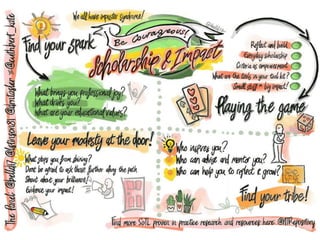 We all have imposter syndrome!
Find your spark
Be Courageous!
Scholarship & Impact
What brings you professional joy?
What drives you?
What are your educational values?
Reflect and build
Everyday scholarship
Criteria of empowerment
What are the tools in your tool kit?
Small steps = big impact!
Playing the game
Leave your modesty at the door!
What stops you from shining?
Don't be afraid to ask those further along the path
Shout about your brilliance!
Evidence your impact!
Who inspires you?
Who can advise and mentor you?
Who can help you to reflect & grow?
Find your tribe!
Find more SOTL proven in practice research and resources here